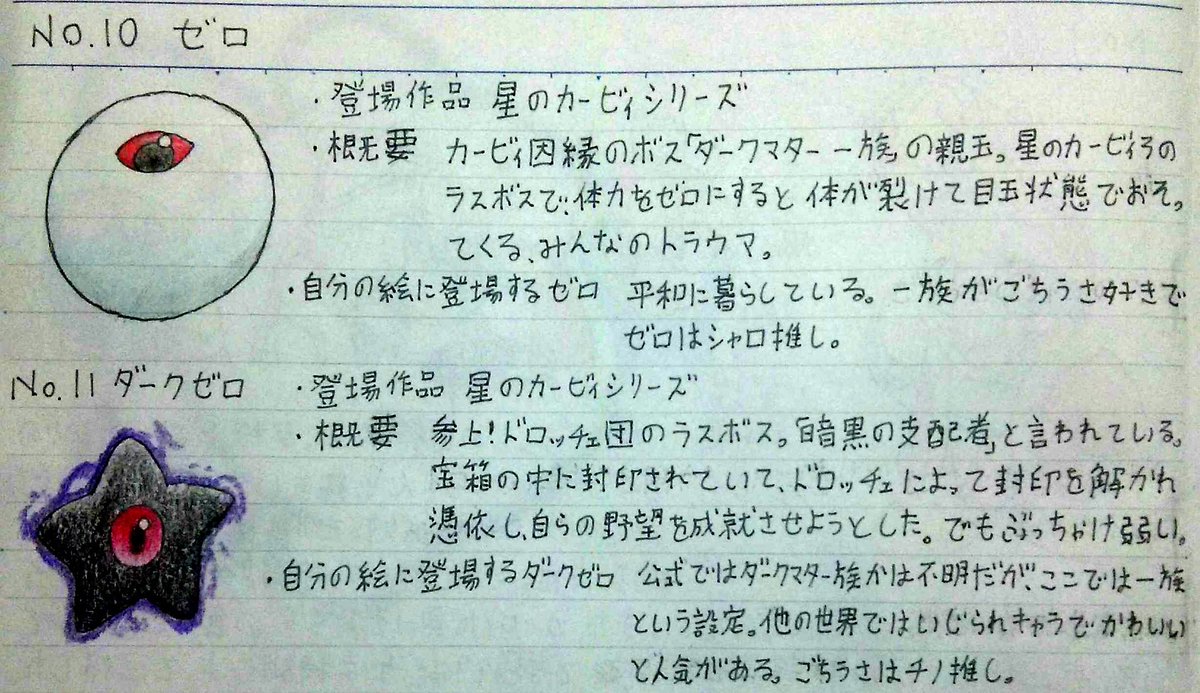 No.10 ゼロ
・登場作品 星のカービィシリーズ
・概要 カービィ因縁のボス「ダークマター一族」の親玉。星のカービィ3の
ラスボスで、体力をゼロにすると体が裂けて目玉状態でおそっ
てくる、みんなのトラウマ。
・自分の絵に登場するゼロ 平和に暮らしている。一族がごちうさ好きで
ゼロはシャロ推し。
No.11 ダークゼロ ・登場作品 星のカービィシリーズ
・概要 参上!ドロッチェ団のラスボス。「暗黒の支配者」と言われている。
宝箱の中に封印されていて、ドロッチェによって封印を解かれ
憑依し、自らの野望を成就させようとした。でもぶっちゃけ弱い。
・自分の絵に登場するダークゼロ 公式ではダークマター族かは不明だが、ここでは一族
という設定。他の世界ではいじられキャラでかわいい
と人気がある。ごちうさはチノ推し。